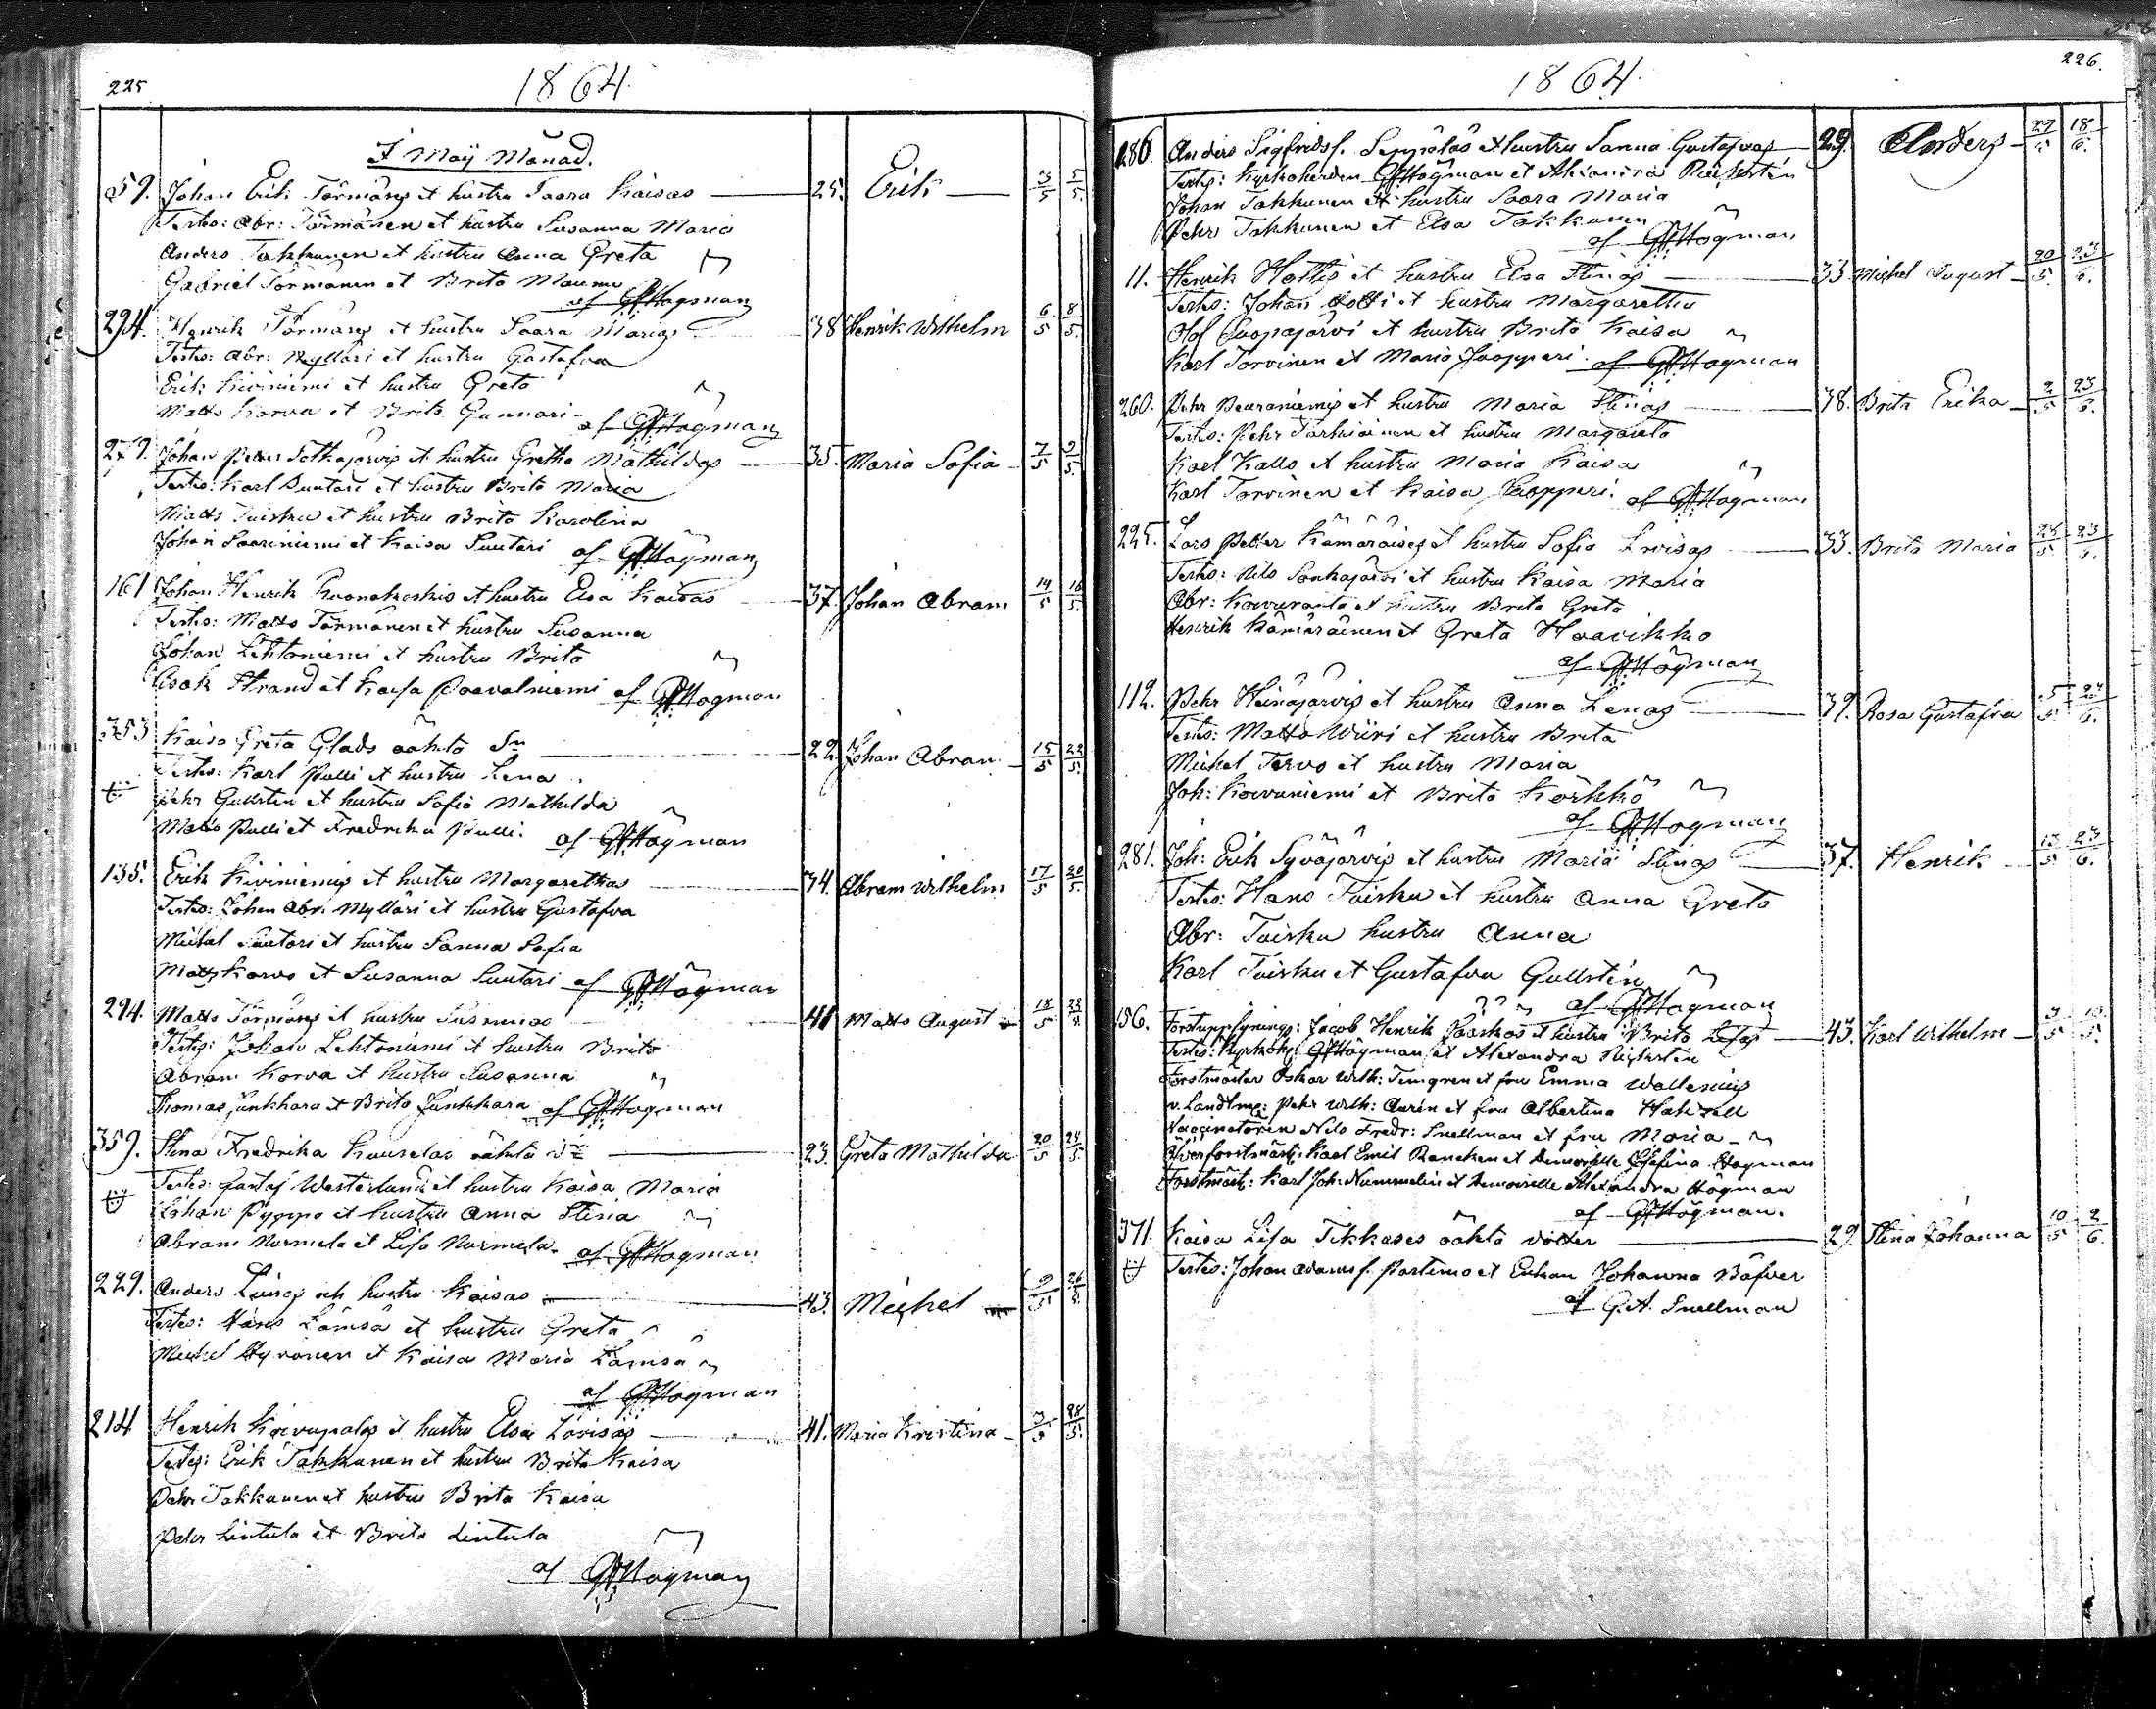 225
1864.
I Maij Månad.
59. Johan Erik Törmäns et hustru Saara Kaisas 25. Erik 3/5 5/5.
Testes: Abr: Törmänen et hustru Susanna Maria
Anders Takkunen et hustru Anna Greta
Gabriel Törmänen et Brita Maunu
af GAHögman
294. Henrik Törmäns et hustru Saara Marias 38 Henrik Wilhelm 6/5 8/5.
Testes: Abr: Mylläri et hustru Gustafva
Erik Kiviniemi et hustru Greta
Matts Korva et Brita Gunnari
af GAHögman
279. Johan Petter Sotkajärvis et hustru Gretha Mathildas 35. Maria Sofia 7/5 9/5.
Testes: Karl Suutari et hustru Brita Maria
Matts Tuisku et hustru Brita Karolina
Johan Saariniemi et Kaisa Suutari af GAHögman
161 Johan Henrik Kuonakoskis et hustru Elsa Kaisas 37. Johan Abram 14/5 16/5.
Testes: Matts Törmänen et hustru Susanna
Johan Lehtoniemi et hustru Brita
Isak Strand et Kaisa Paavalniemi af GAHögman
353 Kaisa Greta Glads oäkta Sn 22. Johan Abram 15/5 22/5.
Testes: Karl Pulli et hustru Lena
Pehr Gullstén et hustru Sofia Mathilda
Matts Pulli et Fredrika Pulli. af GAHögman
135. Erik Kiviniemis et hustru Margarethas 34. Abram Wilhelm 17/5 20/5.
Testes: Johan Abr: Mylläri et hustru Gustafva
Michel Suutari et hustru Sanna Sofia
Matts Korvo et Susanna Suutari af GAHögman
294. Matts Törmäns et hustru Susannas 41 Matts August 18/5 22/5
Testes: Johan Lehtoniemi et hustru Brita
Abram Korva et hustru Susanna
Thomas Junkkara et Brita Junkkara af GAHögman
359. Stina Fredrika Kauselas oäkta 23. Greta Mathilda 20/5 24/5.
Testes: Gustaf Westerlund et hustru Kaisa Maria
Johan Pyyppo et hustru Anna Stina
Abram Nurmela et Lisa Nurmela. af GAHögman
229. Anders och hustru Kaisas 43. Michel 9/5 26/5.
Testes: Hans Lämsä et hustru Greta
Michel Hyvönen et Kaisa Maria Lämsä
af GAHögman
214 Henrik Koivupalos et hustru Elsa Lovisas 41. Maria Kristina 3/5 28/5.
Testes: Erik Takkunen et hustru Brita Kaisa
Pehr Takkunen et hustru Brita Kaisa
Pehr Lintula et Brita Lintula
af GAHögman
226.
1864.
280. Anders Sigfridss. Seppäläs et hustru Sanna Gustafvas 29. Anders 29/5 18/6.
Testes: Kyrkoherden GAHögman et Alexandra
Johan Takkunen et hustru Saara Maria
Pehr Takkunen et Elsa Takkunen
af GAHögman
11. Henrik Hottis et hustru Elsa Stinas 33 Michel August 20/5. 23/6.
Testes: Johan Hotti et hustru Margaretha
Olof Suopajärvi et hustru Brita Kaisa
Karl Torvinen et Maria Juopperi. af GAHögman
260. Pehr Peuraniemis et hustru Maria Stinas 38. Brita Erika 2/5 23/6.
Testes: Pehr Tarkiainen et hustru Margareta
Karl Kallo et hustru Maria Kaisa
Karl Torvinen et Kaisa Juopperi. af GAHögman
225. Lars Petter Kämäräises et hustru Sofia Lovisas 33. Brita Maria 28/5 23/6.
Testes: Nils Sonkajärvi et hustru Kaisa Maria
Abr: Koivuranta et hustru Brita Greta
Henrik Kämäräinen et Greta Haavikko
af GAHögman
112. Pehr Heinäjärvis et hustru Anna Lenas 39. Rosa Gustafva 5/5. 23/6.
Testes: Matts Wiiri et hustru Brita
Michel Tervo et hustru Maria
Joh: Koivuniemi et Brita Körkkö
af GAHögman
281. Joh: Erik Syväjärvis et hustru Maria Stinas 37. Henrik 13/5 23/6.
Testes: Hans Tuisku et hustru Anna Greta
Abr: Tuisku hustru Anna
Karl Tuisku et Gustafva Gullstén
af GAHögman
156. Forstuppsynings: Jacob Henrik Paarkos et hustru Brita Lisas 43. Karl Wilhelm 3/5 10/5.
Testes: Kyrkoh: GAHögman et Alexandra
Forstmästar Oskar Wilh: Timgren et fru Emma Wallenius
v. Landtmä: Pehr Wilh: Aurén et fru Albertina
Vaccinatören Nils Fredr: Snellman et fru Maria
Öfverforstmäst: Karl Emil Rancken et Demoiselle Josefina Högman
Forstmäst: Karl Joh: Nummelin et Demoiselle Alexandra Högman
af GAHögman.
371. Kaisa Lisa Tikkases oäkta dotter 29. Stina Johanna 10/5 2/6.
Testes: Johan Adams s. Portimo et Enkan Johanna Båfver
af G.A. Snellman